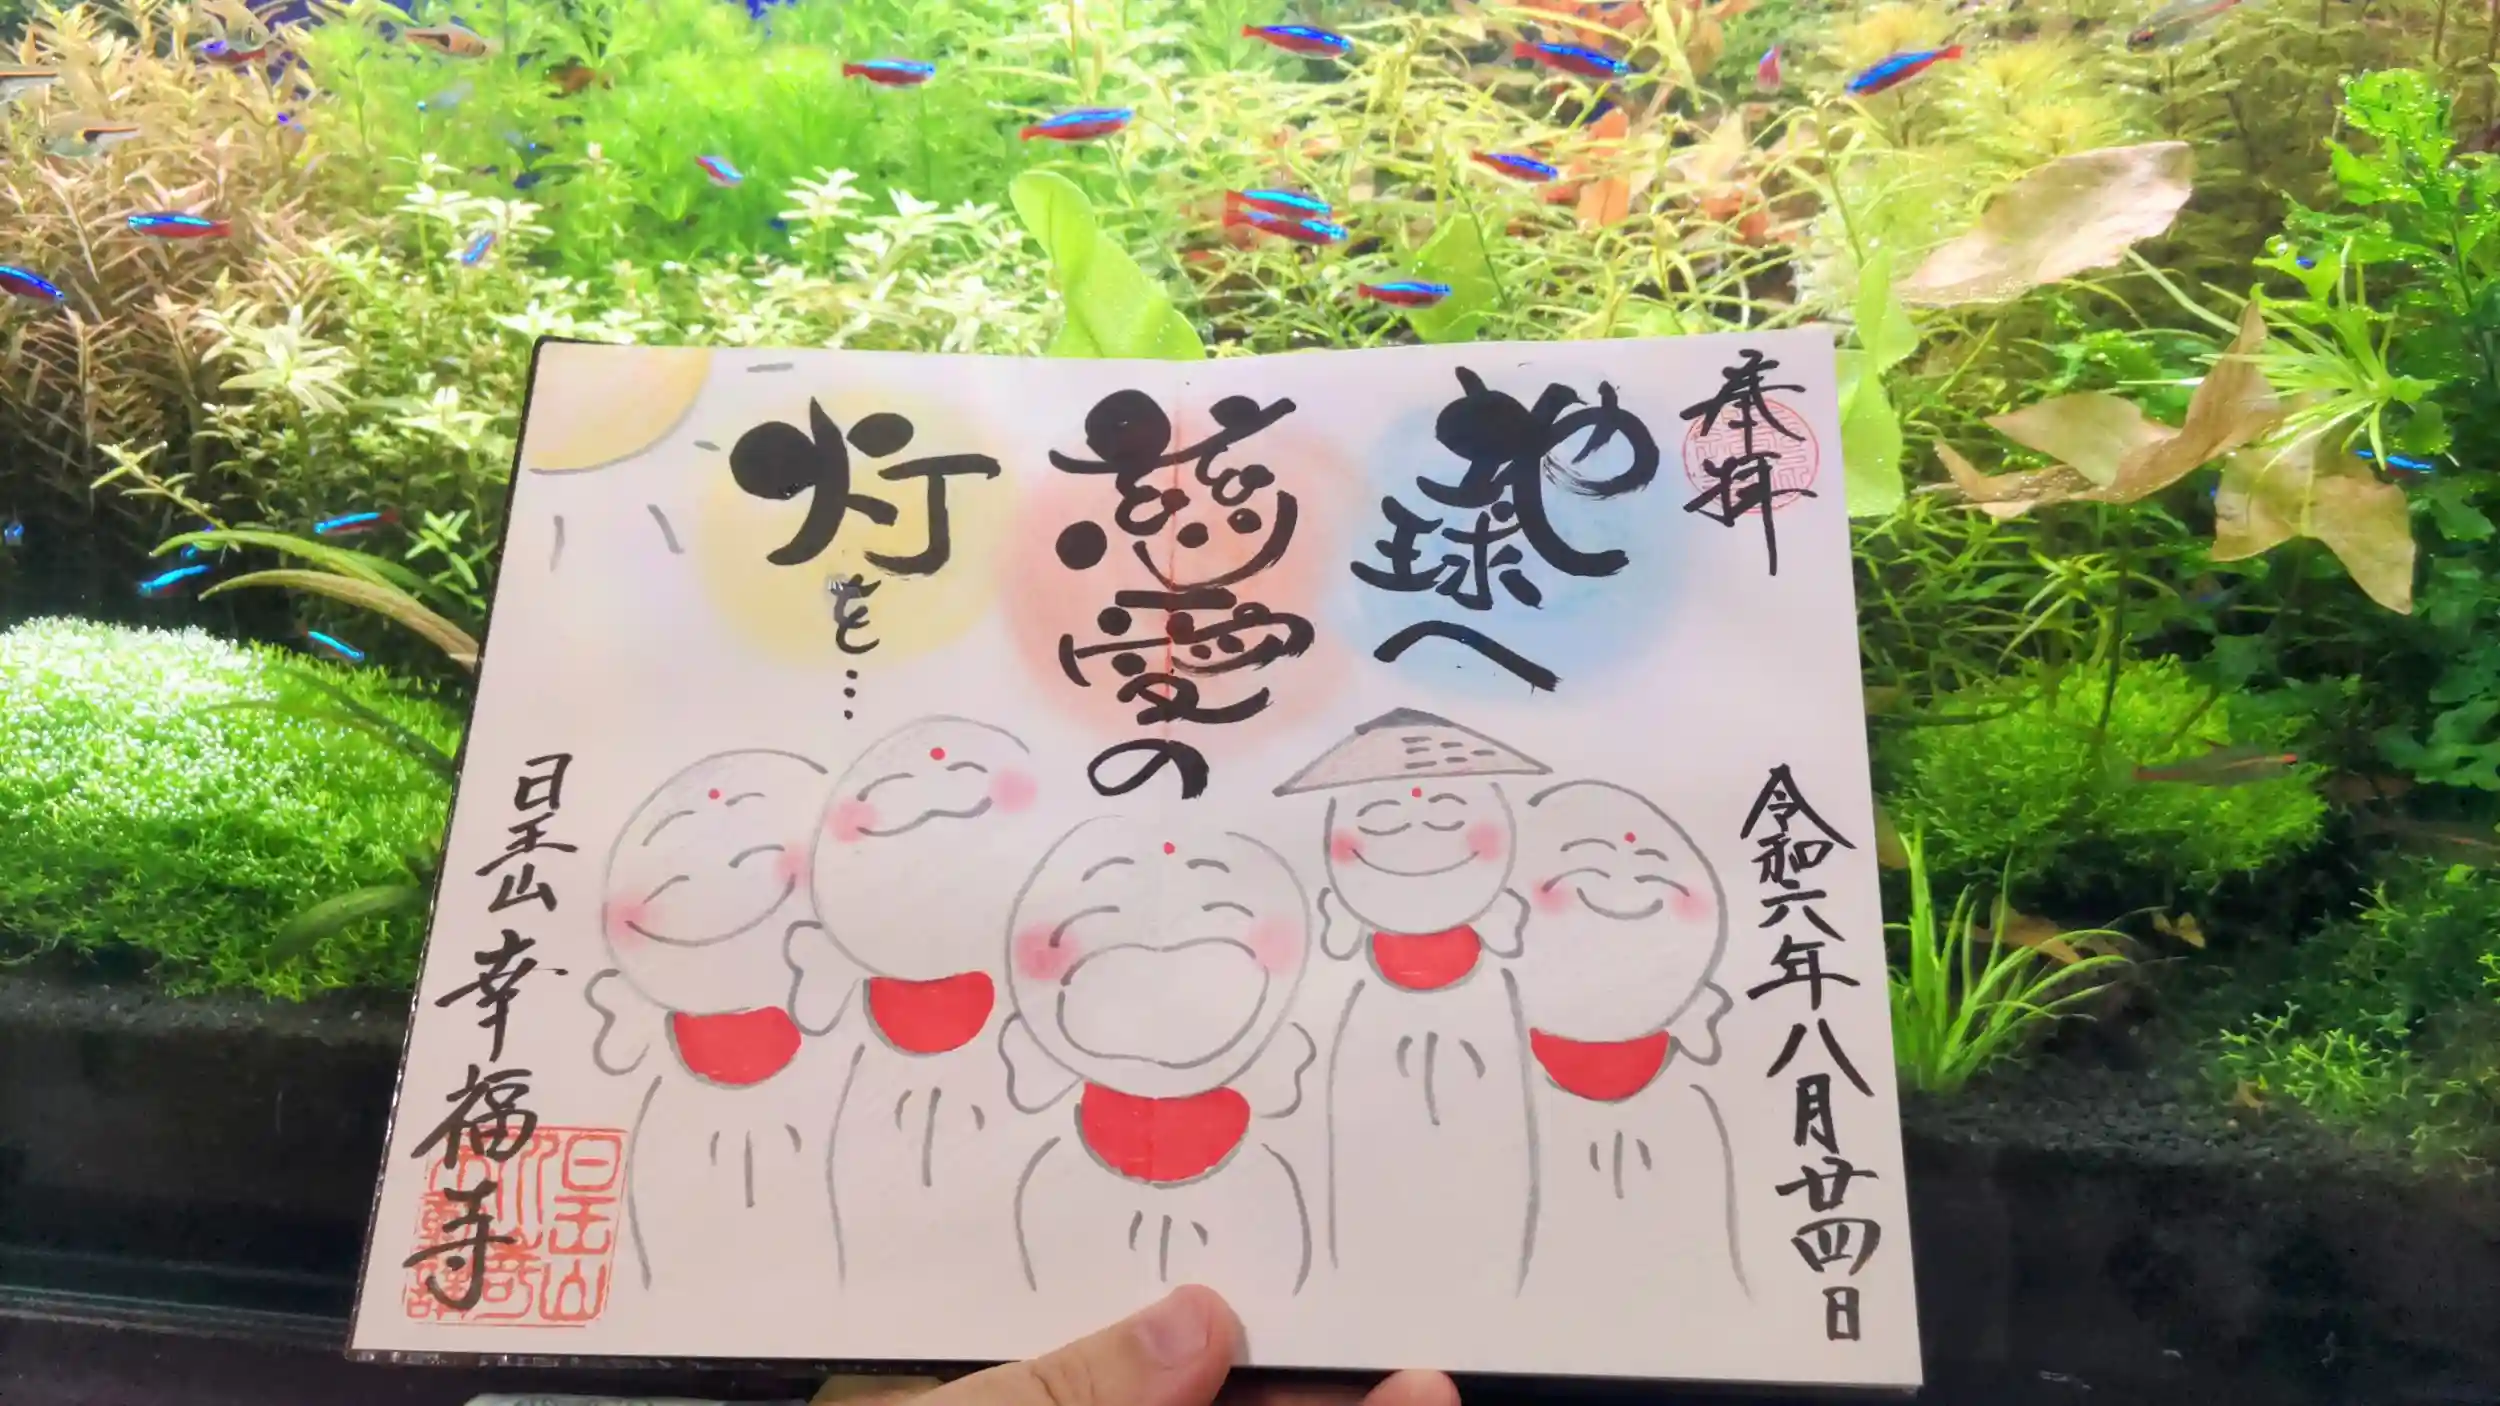 奉拝
地球へ
慈愛の
灯を…
令和六年八月廿四日
日王山
幸福寺